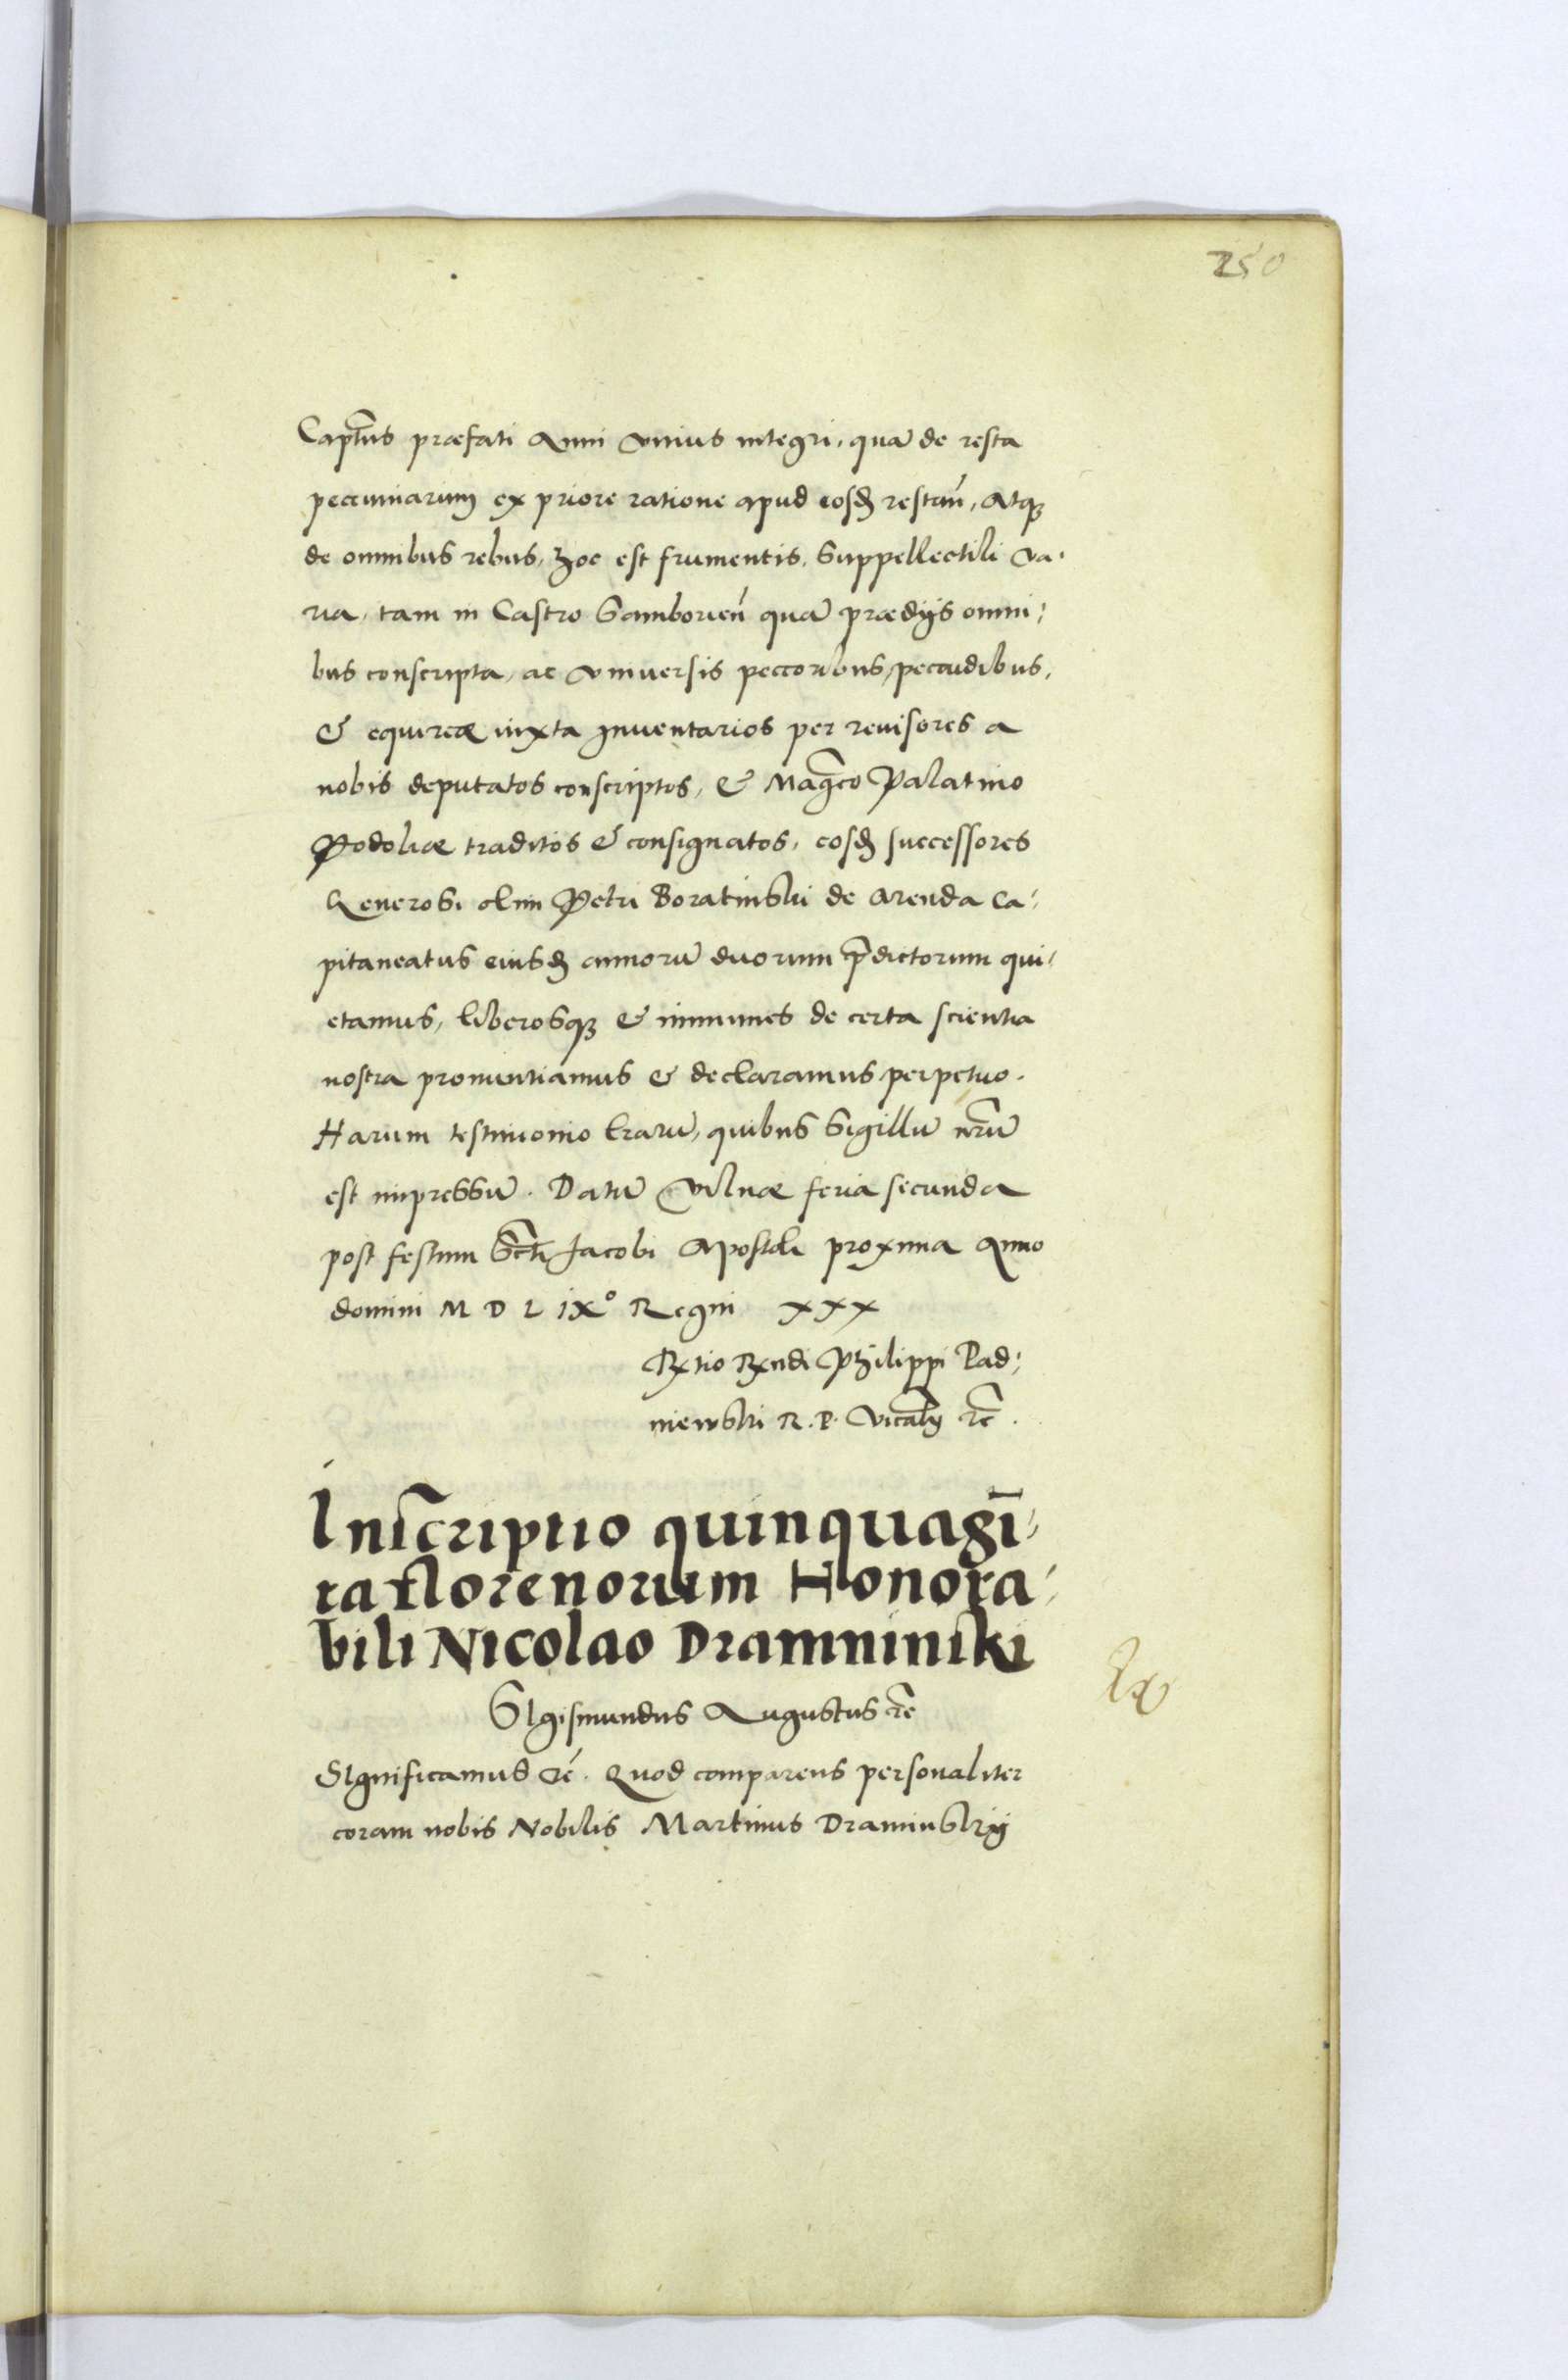 250
Capt̃us præfati Anni vnius integri, quā de resta
pecuniarum ex priore ratione apud eosd restañ, Atq;
de omnibus rebus, hoc est frumentis, Suppellectili va:
ria, tam in Castro Samborień quā prædijs omni:
bus conscripta, ac vniuersis peccoribus, peccudibus,
& equirea iuxta Inuentarios per reuisores a
nobis deputatos conscriptos, & Mag̃co Palatino
Podoliæ traditos & consignatos, eosd successores
Generosi olim Petri Boratinski de Arenda Ca:
pitaneatus eiusd annorū duorum p̃dictorum qui:
etamus, liberosq; & immunes de certa scientia
nostra pronuntiamus & declaramus perpetuo.
Harum testimonio l̃rarū, quibus Sigillū nr̃ū
est impressū. Datū Vilnæ feria secunda
post festum Sc̃ti Jacobi Apostoli proxima Anno
domini M D L IX° Regni XXX
Rx̃tio Rxndi Philippi Pad:
niewski R. P. Vicañlij rc̃.
Inscriptio quinquagī:
ta florenorum Honora:
bili Nicolao Dramninski
SIgismundus Augustus rc̃
SIgnificamus rc̃. Quod comparens personaliter
coram nobis Nobilis Martinus Draminskij